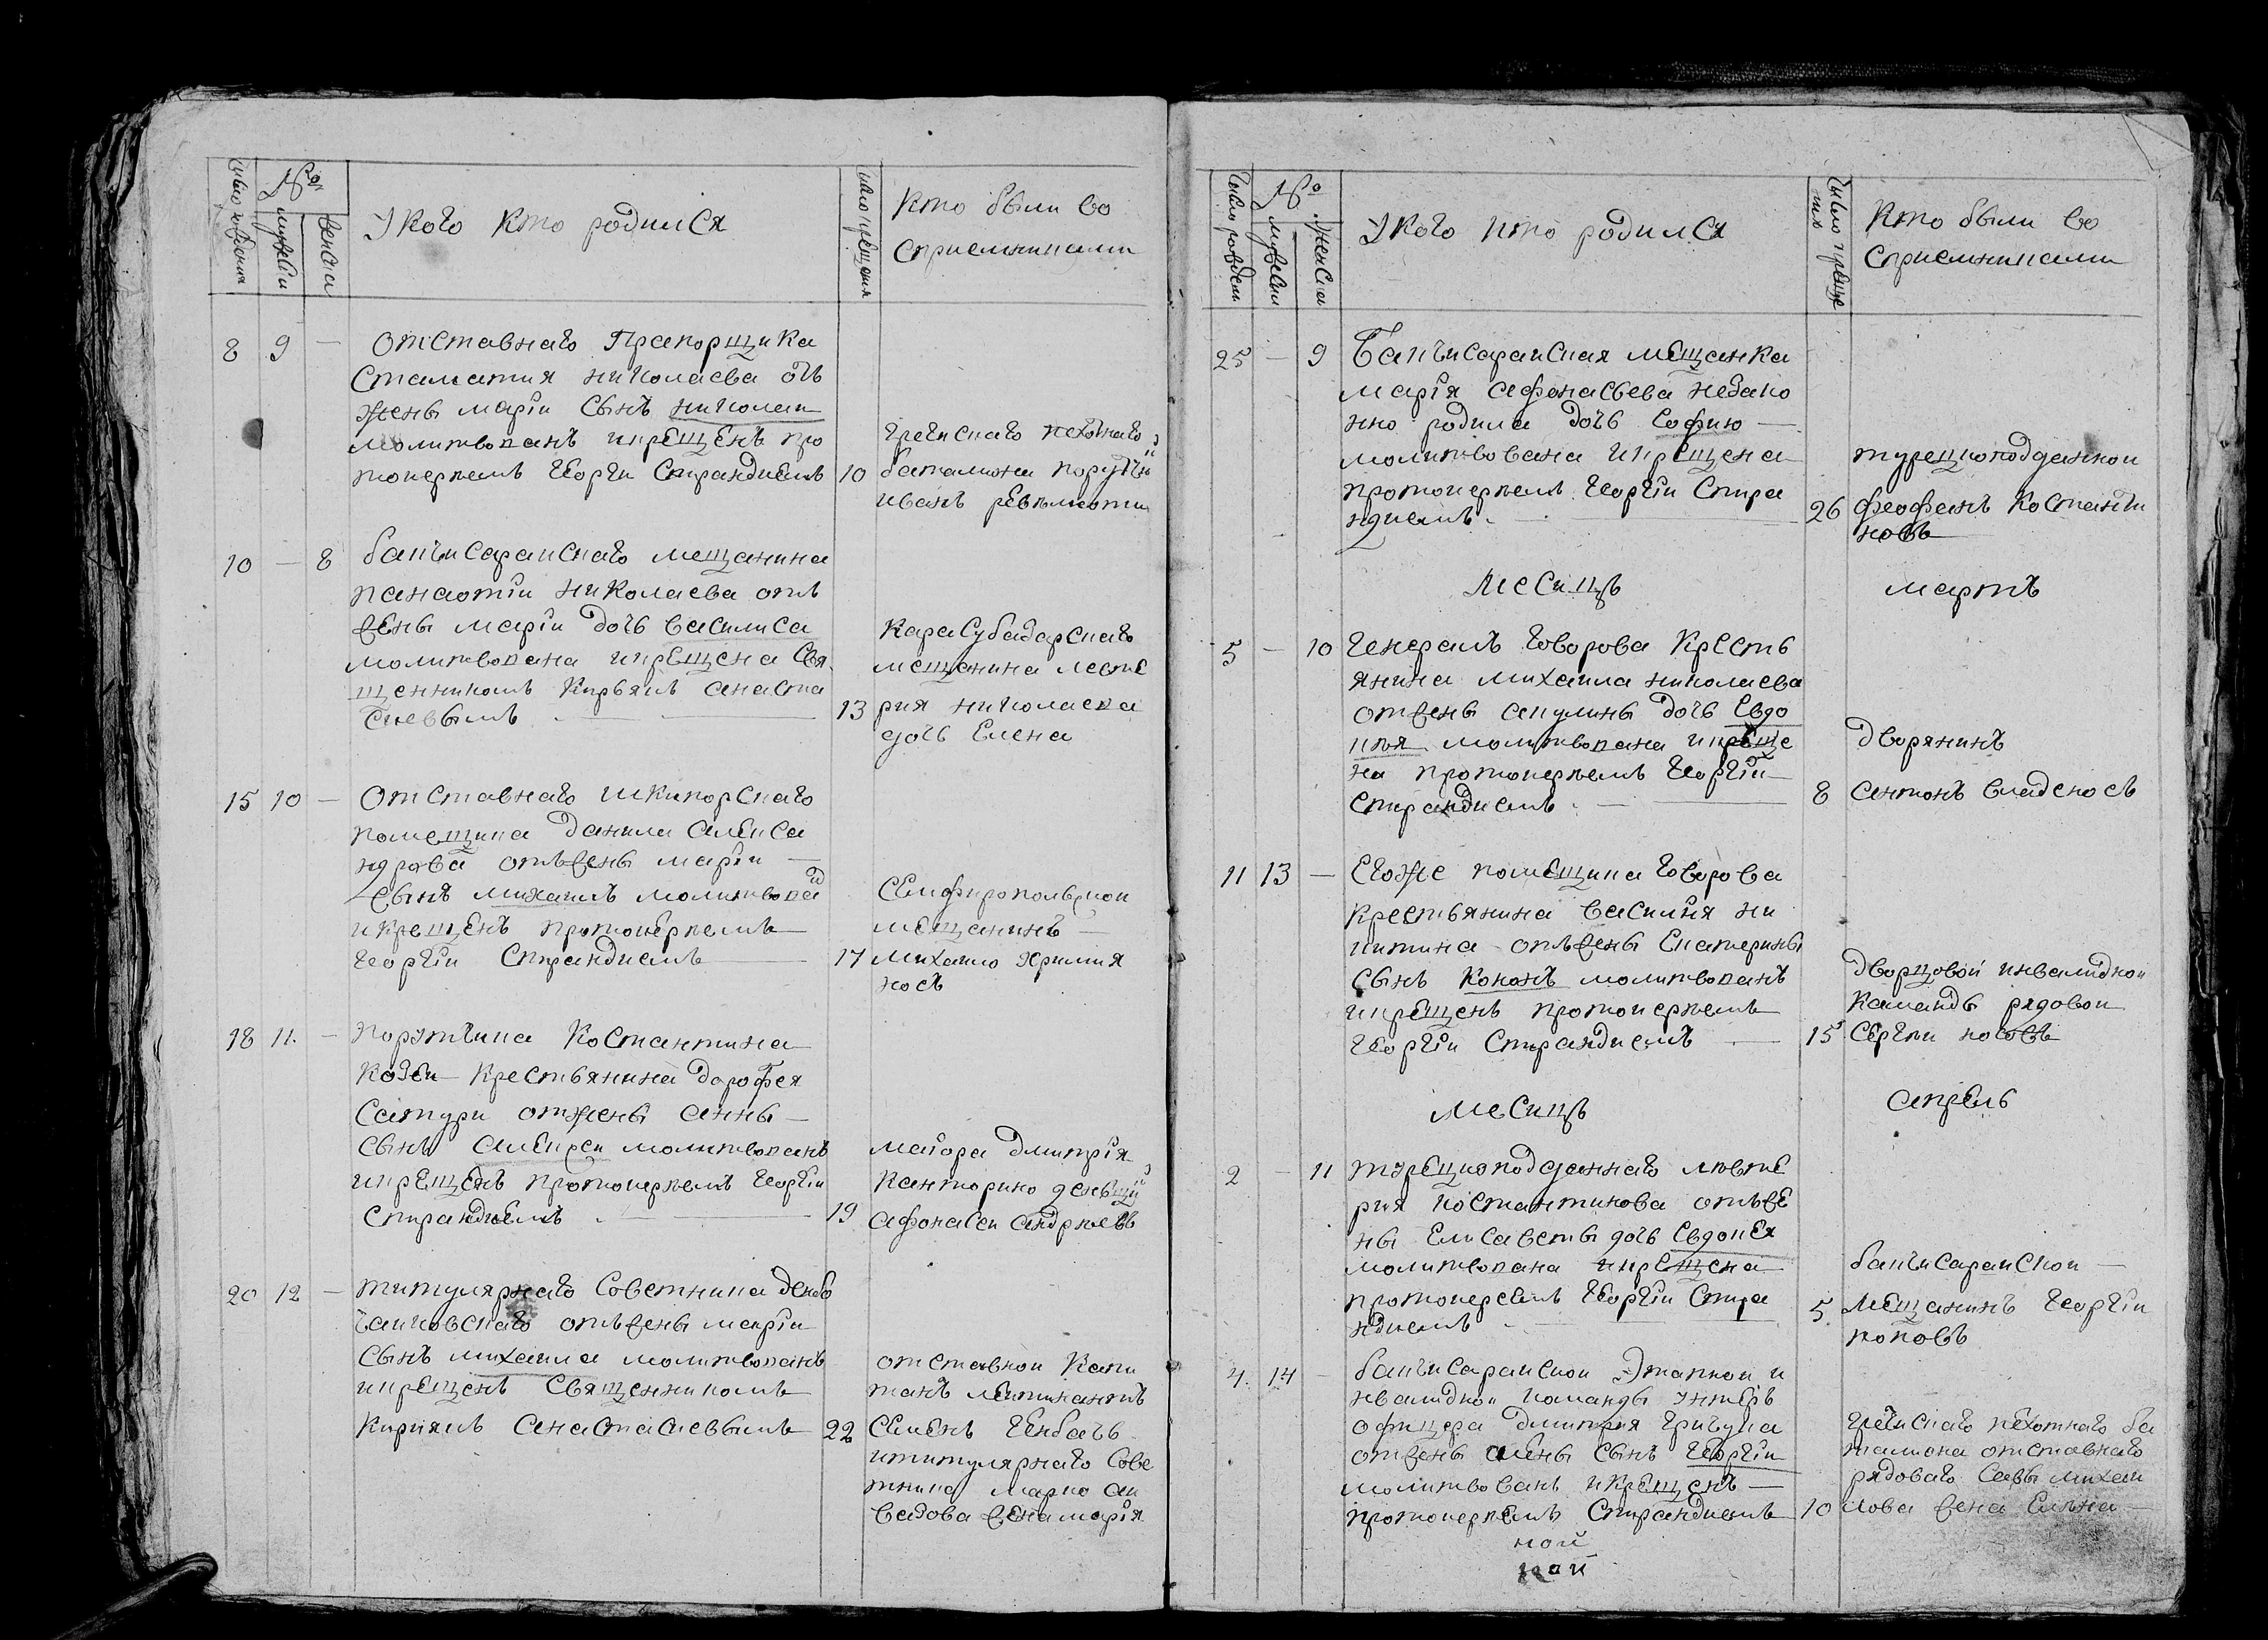 Число рождения
№
мужеска
женска
У кого кто родился
число крещения
Кто были во
сприемниками
8 9 —
Отставнаго Прапорщика
Стаматия николаева отъ
жены марiи сынъ николаи
молитвованъ икрещенъ про
тоиереемъ Георги Спирандиемъ
10
греческаго пехотнаго
баталиона
иванъ
10 — 8
бахчисараискаго мещанина
панаотiи николаева отъ
жены марiи дочь василиса
молитвована икрещена Свя
щенникомъ Кирьямъ анаста
сиевымъ
13
Карасубадарскаго
мещанина левте
рия николаева
дочь Елена
15 10 —
Отставнаго шкипорскаго
помещика данила алекса
ндрова отъжены марiи
сынъ михаилъ молитвова
икрещенъ протоиереемъ
Георгiи Спирандиемъ
17
Симфиропольскои
мещанинъ
михаило
носъ
18 11. —
порутчика Костантина
крестьянина дорофея
Сатури отжены анны
сынъ алексеи молитвованъ
икрещенъ протоиереемъ Георгiи
спирандиемъ
19
маiора дмитрiя
Канторино денщи
афонасеи андреевъ
20 12 —
титулярнаго Советника
отъжены марiи
сынъ михаила молитвованъ
икрещенъ Священникомъ
Кириямъ анастасиевымъ
22
отставнои Капи
танъ леитинантъ
Семенъ
ититулярнаго Сове
тника марко
жена марiя
Число рожден
№
мужески
женска
У кого кто родился
число креще
ния
Кто были во
сприемниками
25 — 9
Бахчисараиская мещанка
марiя афонасьева незако
нно родила дочь Софию
молитвована икрещена
протоиереемъ Георгiи Спира
ндиемъ.
26
турецкоподданнои
феофанъ Костанти
новъ
месицъ мартъ
5 — 10
Генералъ говорова Кресть
янина михаила николаева
отжены акулины дочь Евдо
кия молитвована икреще
на протоиереемъ Георгiи
спирандиемъ.
8
дворянинъ
антонъ
11 13 —
Егоже помещика говорова
крестьянина василия ни
китина отъжены Екатерины
сынъ Кононъ молитвованъ
икрещенъ протоиереемъ
Георгiи Спирандиемъ
15
дворцовои инвалиднои
Каманды рядовои
Сергеи носовъ
месицъ апрель
2 — 11
турецкоподданнаго левте
рия костантинова отъже
ны Елисаветы дочь Евдокея
молитвована икрещена
протоиереемъ Георгiи Спира
ндиемъ
5
бахчисараискои
мещанинъ Георгiи
поповъ
4. 14 —
бахчисараискои Этапнои и
нвалиднои Команды унтеръ
офицера дмитрия
отжены сынъ Георгiи
молитвованъ икрещенъ
протоиереемъ Спирандиемъ
10
греческаго пехотнаго ба
талиона отставнаго
рядоваго Савы михаи
лова жена Елена
ной
ной